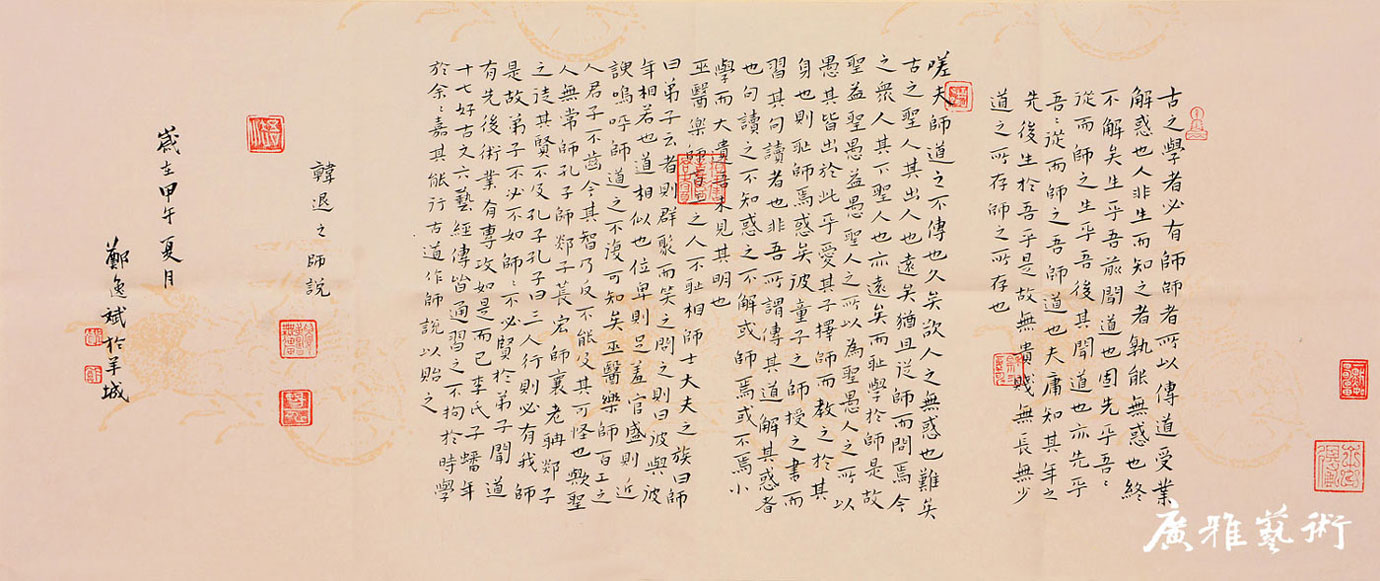 古之學者必有師師者所以傳道受業
解惑也人非生而知之者孰能無惑也終
不解矣生乎吾前聞道也固先乎吾〻
從而師之生乎吾後其聞道也亦先乎
吾〻從而師之吾師道也夫庸知其年之
先後生於吾乎是故無貴賤無長無少
道之所存師之所存也
嗟夫師道之不傳也久矣欲人之無惑也難矣
古之聖人其出人也遠矣猶且從師而問焉今
之衆人其下聖人也亦遠矣而耻學於師是故
聖益聖愚益愚聖人之所以為聖愚人之所以
愚其皆出於此乎愛其子擇師而教之於其
身也則耻師焉惑矣彼童子之師授之書而
習其句讀者也非吾所謂傳其道解其惑者
也句讀之不知惑之不解或師焉或不焉小
學而大遺吾未見其明也
巫醫樂師百工之人不耻相師士大夫之族曰師
曰弟子云者則群聚而笑之問之則曰彼與彼
年相若也道相似也位卑則足羞官盛則近
諛嗚呼師道之不復可知矣巫醫樂師百工之
人君子不齒今其智乃反不能及其可怪也歟聖
人無常師孔子師郯子萇宏師襄老聃郯子
之徒其賢不及孔子孔子曰三人行則必有我師
是故弟子不必不如師〻不必賢於弟子聞道
有先後術業有專攻如是而已李氏子蟠年
十七好古文六藝經傳皆通習之不拘於時學
於余〻嘉其能行古道作師說以貽之
韓退之師說
歲在甲午夏月
鄭逸斌於羊城
廣雅藝術